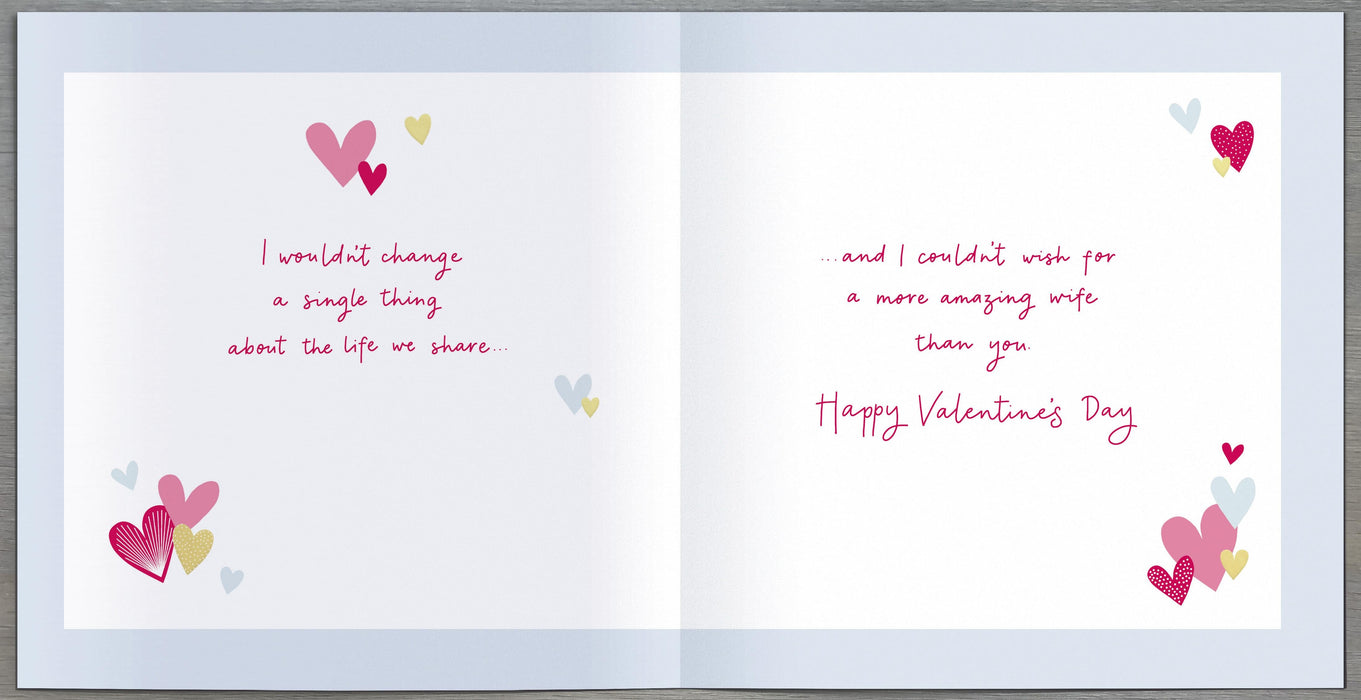 I wouldn't change
a single thing
about the life we share...
...and I couldn't wish for
a more amazing wife
than you.
Happy Valentine's Day